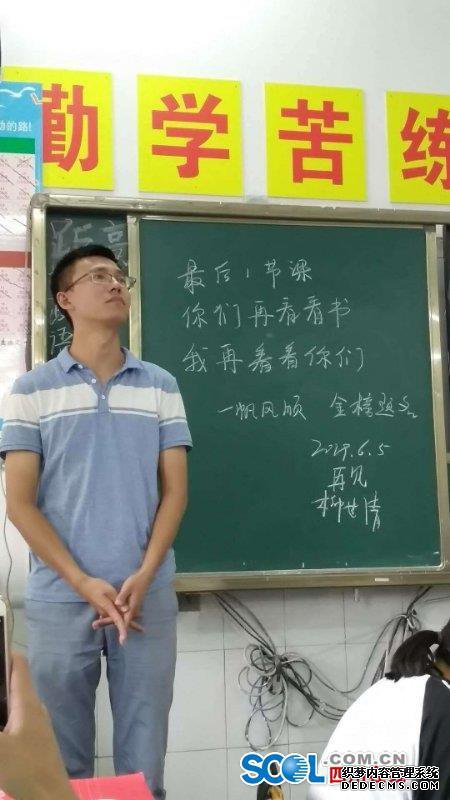 勤学苦练
动的路!
距高
语
最后1节课
你们再看看书
我再看看你们
一帆风顺 金榜题名
2019.6.5
再见
SCOL.COM.CN
织梦内容管理系统
DEDECMS.COM